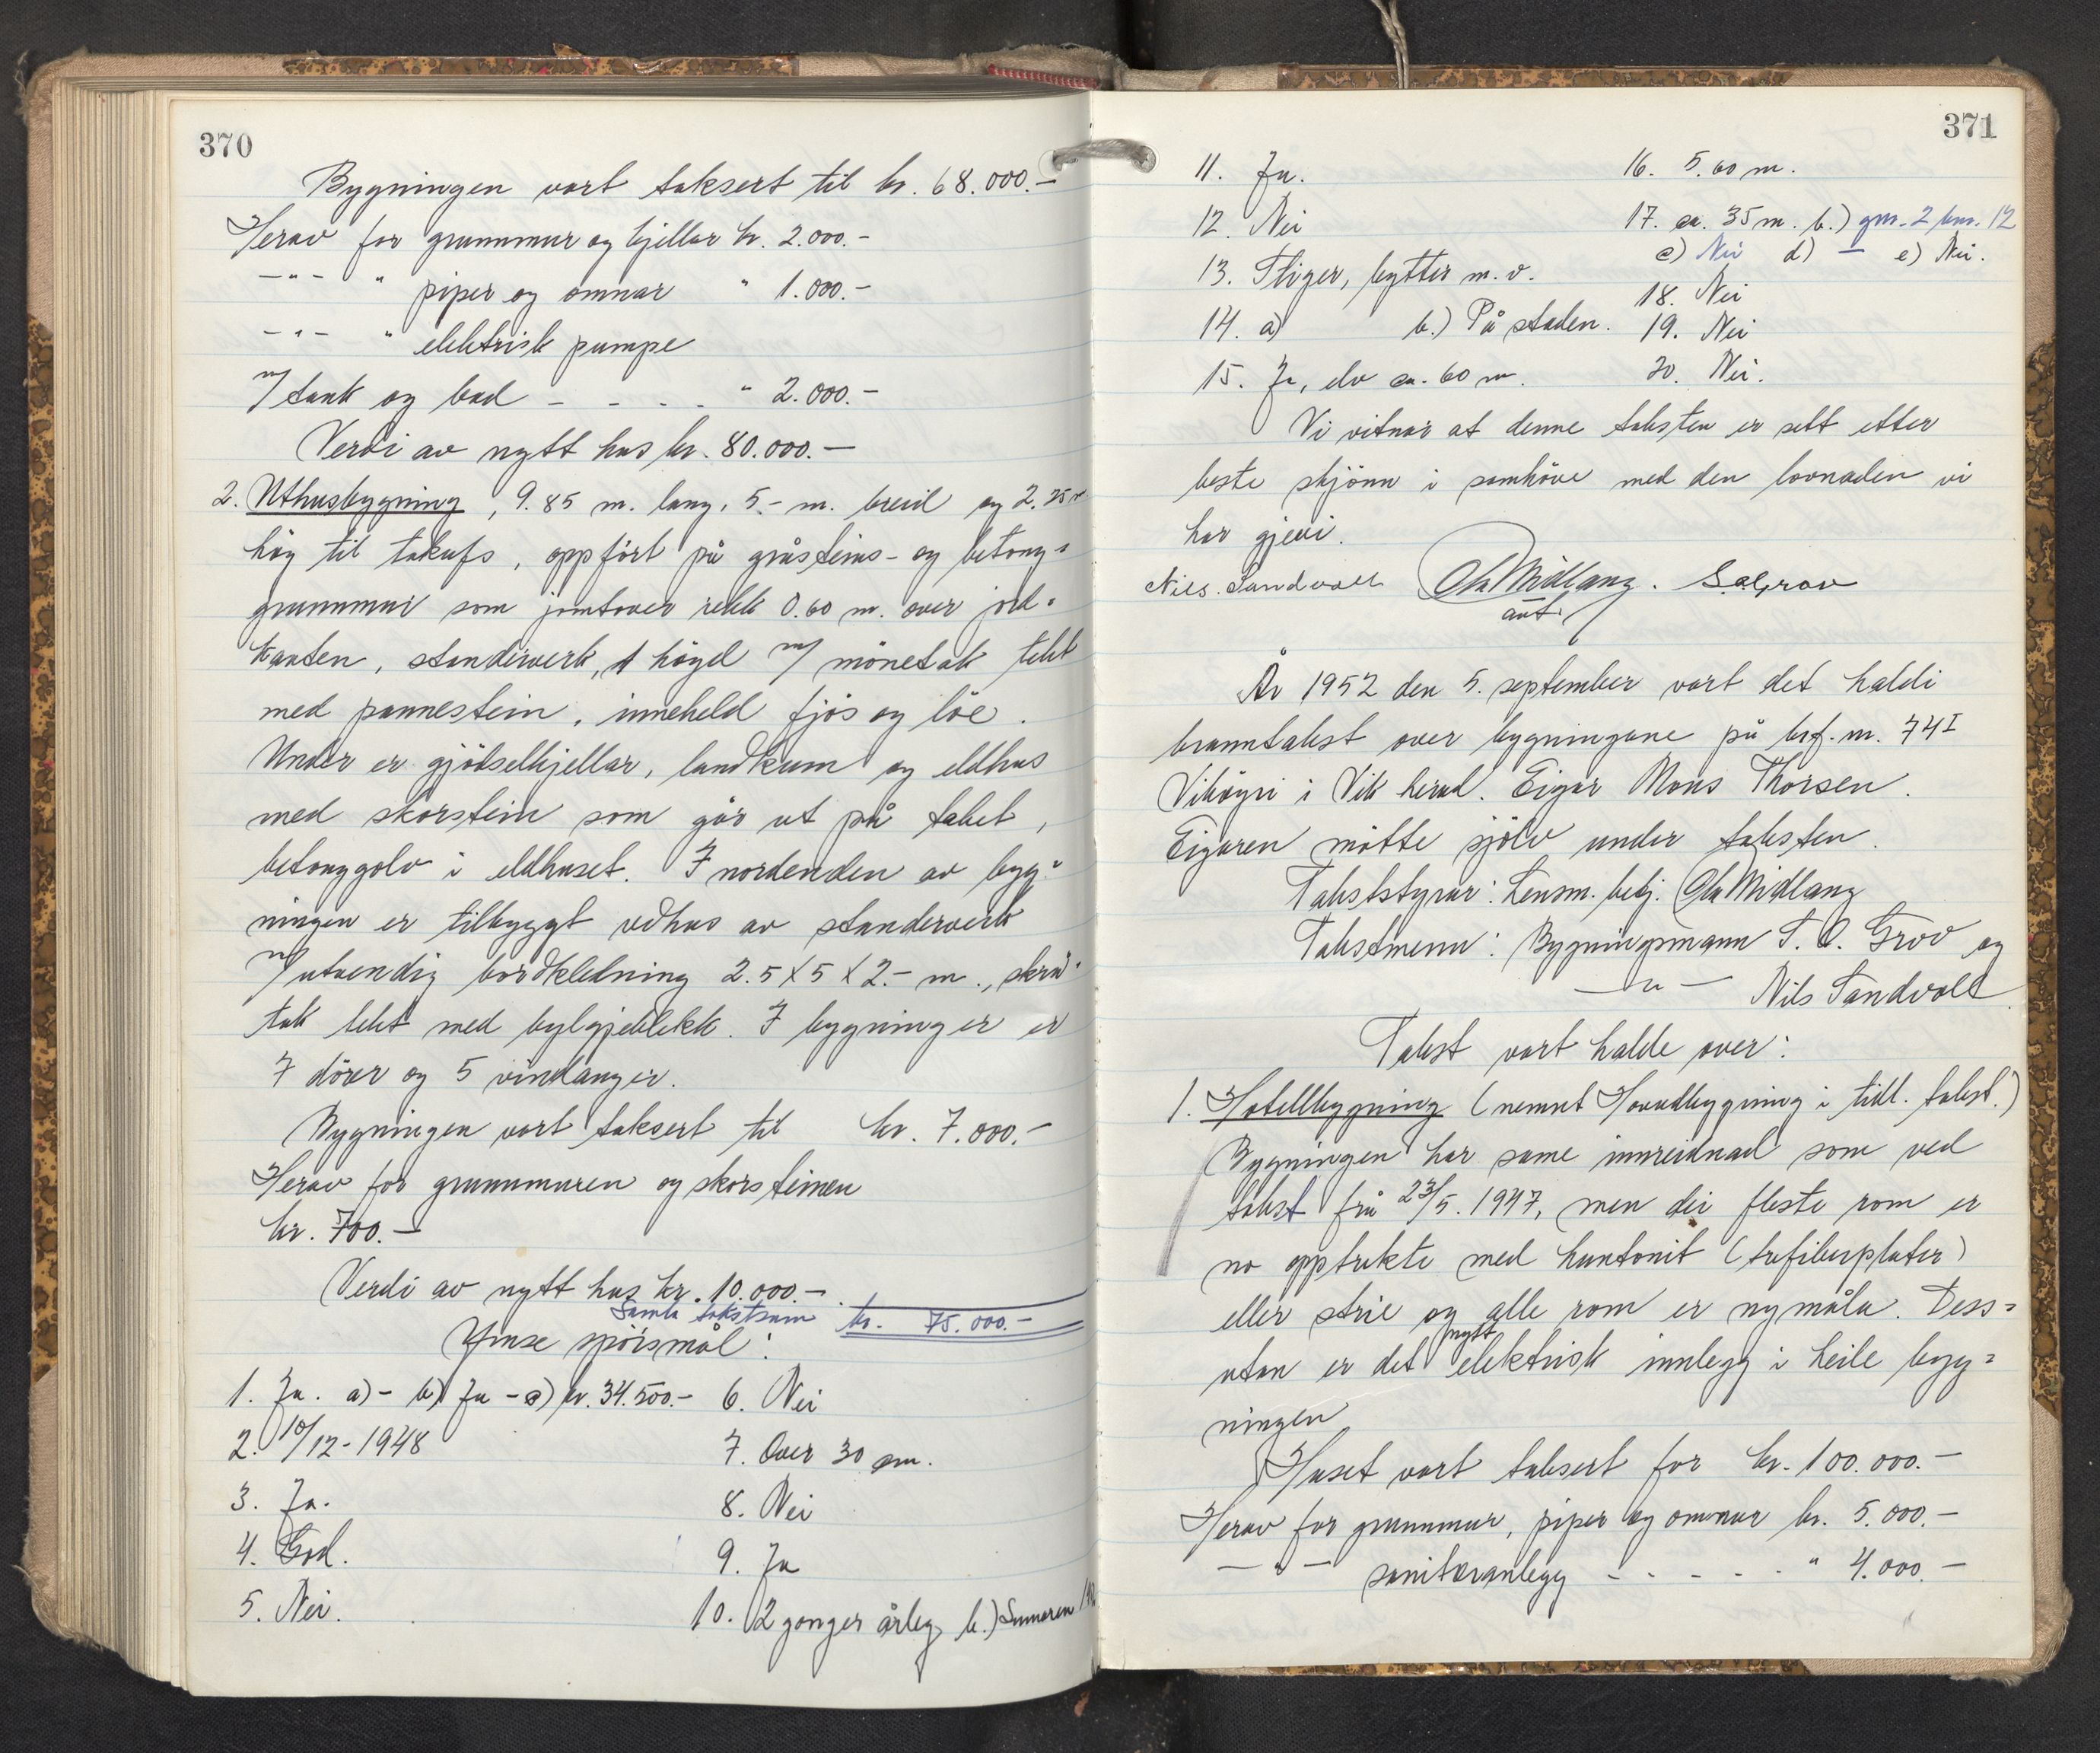 370
Bygningen vart taksert til kr. 68.000.-
Herav for grunnmur og kjellar kr. 2.000.-
-"- " piper og omnar " 1.000.-
-"- " elektrisk pumpe
m/ tank og bad - - - - " 2.000.-
Verdi av nytt hus kr. 80.000.-
2. Uthusbygning, 9.85 m. lang, 5.- m. breid og 2.25 m
høg til takufs, oppført på gråsteins- og betong=
grunnmur som jamtover rekk 0.60 m. over jord=
kanten, standerverk, 1 høgd m/ mønetak tekt
med pannestein, inneheld fjøs og løe.
Under er gjødselkjellar, landkum og eldhus
med skorstein som går ut på taket,
betonggolv i eldhuset. I nordenden av byg=
ningen er tilbyggt vedhus av standerverk
m/ utvendig bordkledning 2.5 x 5 x 2.- m., skrå=
tak tekt med bylgjeblekk. I bygninger er
7 dører og 5 vindauger.
Bygningen vart taksert til kr. 7.000.-
Herav for grunnmuren og skorsteinen
kr. 700.-
Verdi av nytt hus kr. 10.000.-
Samla takstsum kr. 75.000.-
Ymse spörsmål:
1. Ja. a) - b) Ja - c) kr. 34.500.- 6. Nei
2. 10/12-1948 7. Over 30 cm.
3. Ja. 8. Nei
4. God. 9. Ja
5. Nei. 10. 2 gonger årleg b.) Sumaren
371
11. Ja. 16. 5.60 m.
12. Nei 17. ca. 35 m. b.) gnr. 2 bnr. 12
c) Nei d) - e) Nei.
13. Stiger, bytter m.v.
18. Nei
14. a) b.) På staden. 19. Nei
15. Ja, elv ca. 60 m. 20. Nei.
Vi vitnar at denne taksten er sett etter
beste skjönn i samhöve med den lovnaden vi
har gjevi.
Nils Sandvoll Ola Midlang. S.O. Grov
aut.
År 1952 den 5. september vart det haldi
branntakst over bygningane på brf. nr. 74 I
Vikøyri i Vik herad. Eigar Mons Thorsen.
Eigaren møtte sjølv under taksten.
Takststyrar: Lensm. betj. Ola Midlang
Takstmenn: Bygningsmann S. O. Grov og
-"- Nils Sandvoll
Takst vart halde over:
1. Hotellbygning (nemnt Hovudbygning i tidl. takst.)
Bygningen har same innreidnad som ved
takst frå 23/5. 1947, men dei fleste rom er
no opptrekte med huntonit (trefiberplater)
eller strie og alle rom er nymåla. Dess=
utan er det nytt elektrisk innlegg i heile byg=
ningen
Huset vart taksert for kr. 100.000.-
Herav for grunnmur, piper og omnar kr. 5.000.-
-"- sanitæranlegg - - - - - " 4.000.-